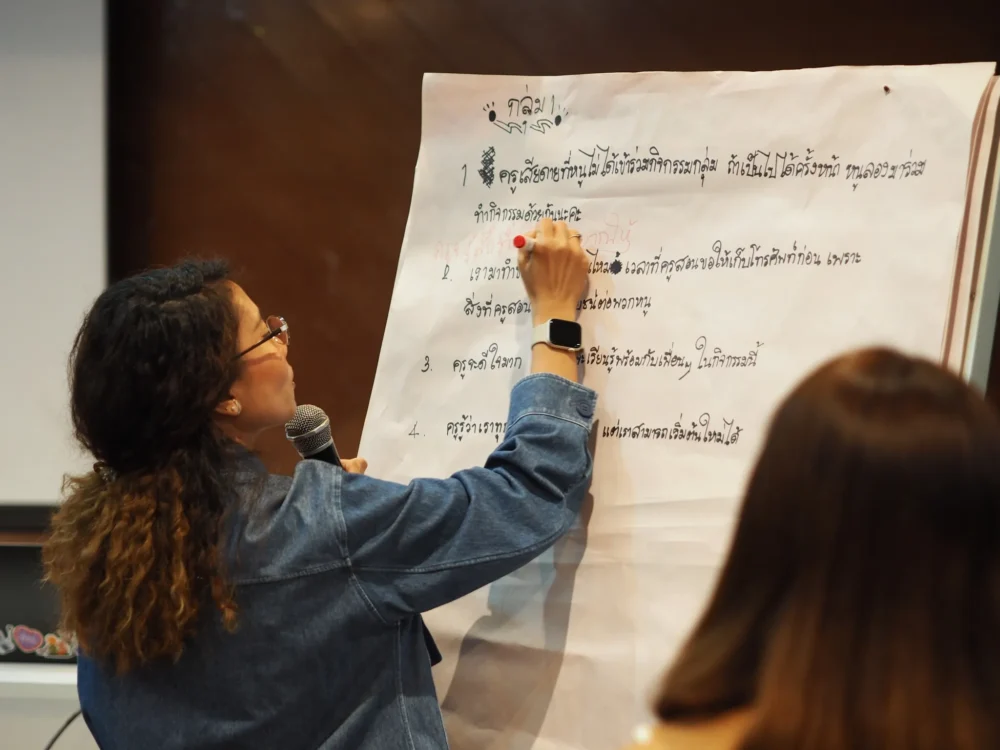 กลุ่ม 1
1 ครูเสียดายที่หนูไม่ได้เข้าร่วมกิจกรรมกลุ่ม ถ้าเป็นไปได้ครั้งหน้า หนูลองมาร่วม
ทำกิจกรรมด้วยกันนะคะ
2. เรามาทำ ไหม เวลาที่ครูสอนขอให้เก็บโทรศัพท์ก่อน เพราะ
สิ่งที่ครูสอน ต่อพวกหนู
3. ครูจะดีใจมาก เรียนรู้พร้อมกับเพื่อนๆ ในกิจกรรมนี้
4. ครูรู้ว่าเรา แต่เราสามารถเริ่มต้นใหม่ได้